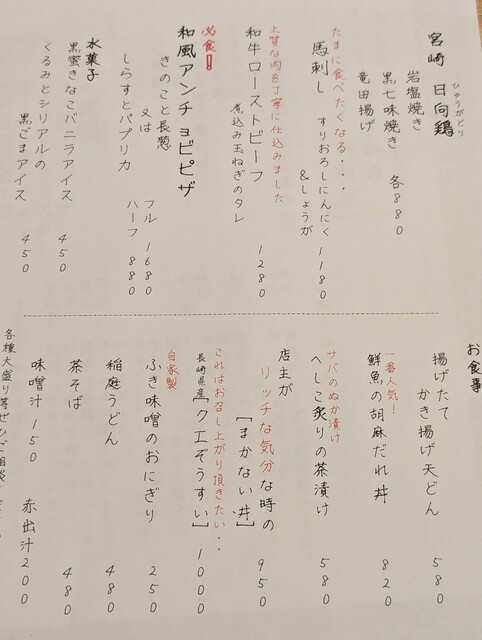 宮崎 日向鶏
ひゅうがどり
岩塩焼き
黒七味焼き 各880
竜田揚げ
たまに食べたくなる・・・
馬刺し すりおろしにんにく 1180
&しょうが
上質な肉を丁寧に仕込みました
和牛ローストビーフ 1280
煮込み玉ねぎのタレ
必食!
和風アンチョビピザ
きのこと長葱 フル 1680
又は ハーフ 880
しらすとパプリカ
水菓子
黒蜜きなこバニラアイス 450
くるみとシリアルの
黒ごまアイス 450
お食事
揚げたて
かき揚げ天どん 580
一番人気!
鮮魚の胡麻だれ丼 820
サバのぬか漬け
へしこ炙りの茶漬け 580
店主が
リッチな気分な時の
[まかない丼] 950
これはお召し上がり頂きたい・・
長崎県産[クエぞうすい] 1000
自家製
ふき味噌のおにぎり 250
稲庭うどん 480
茶そば 480
味噌汁 150 赤出汁 200
各種大盛り等ぜひご相談